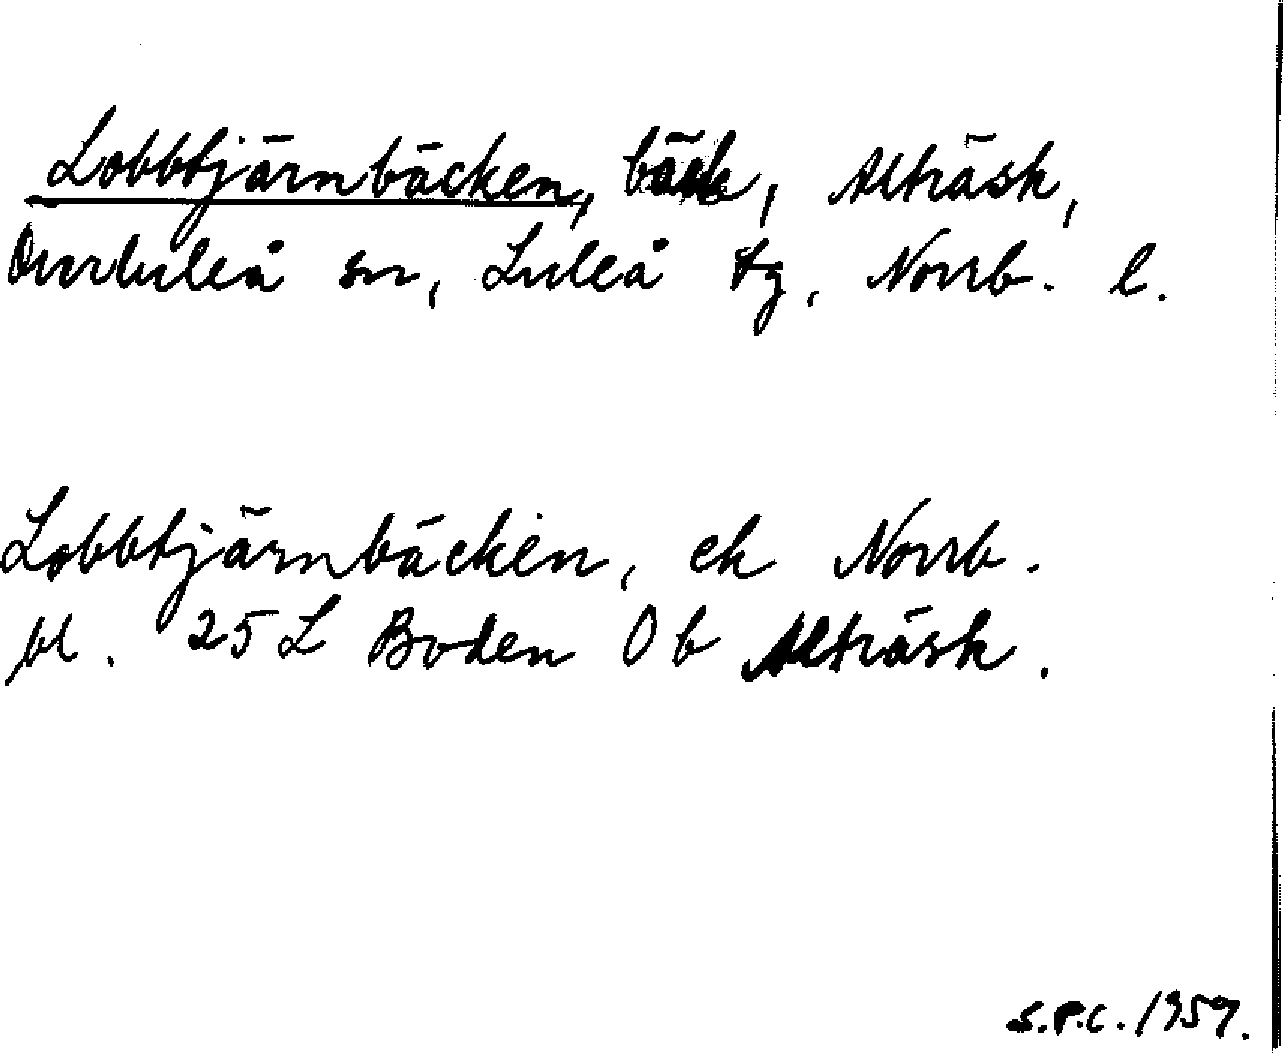 Lobbtjärnbäcken, bäck, Alträsk,
Överluleå sn, Luleå tg, Norrb. l.
Lobbtjärnbäcken, ek Norrb.
bl. 25 L Boden Ö b Alträsk.
S.P.C. 1959.